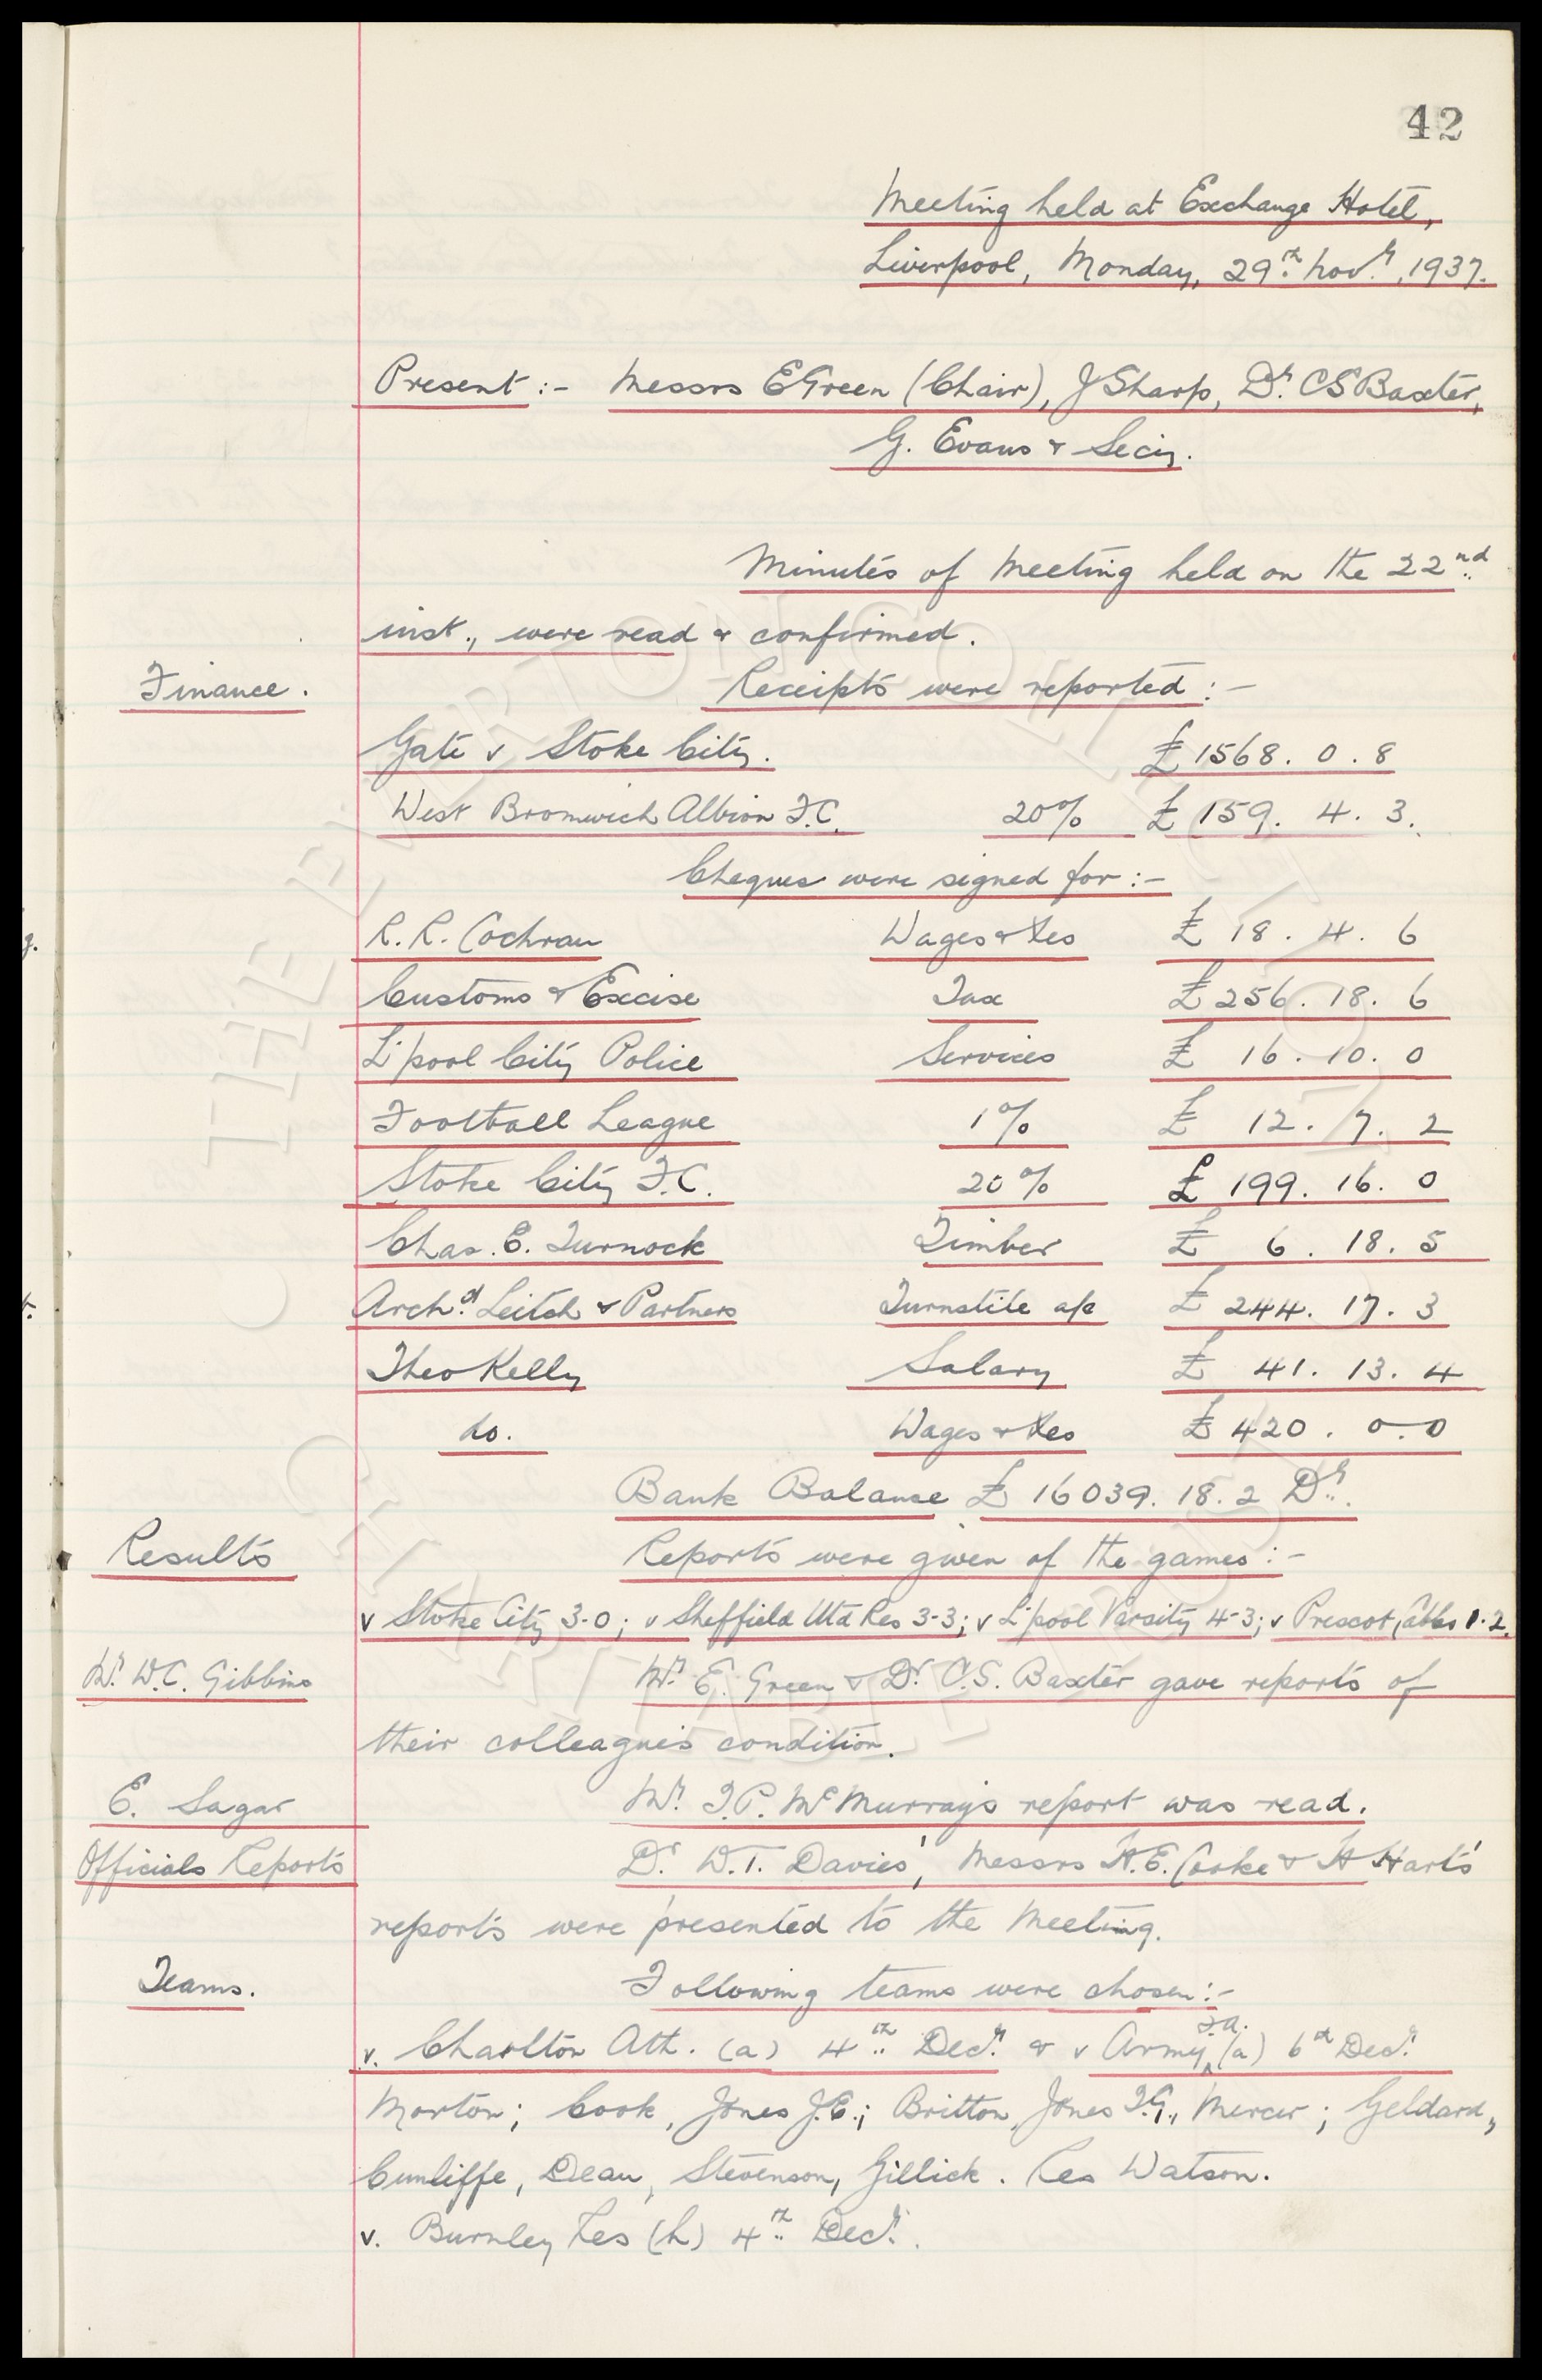 42
Meeting held at Exchange Hotel,
Liverpool, Monday, 29th Novr, 1937.
Present :- Messrs E Green (Chair), J Sharp, Dr. C S Baxter,
G. Evans & Secy.
Minutes of Meeting held on the 22nd
inst., were read & confirmed.
Finance. Receipts were reported :-
Gate v Stoke City. £ 1568. 0. 8
West Bromwich Albion F.C. 20% £ 159. 4. 3.
Cheques were signed for :-
R. R. Cochran Wages & Xes £ 18. 4. 6
Customs & Excise Tax £ 256. 18. 6
L'pool City Police Services £ 16. 10. 0
Football League 1% £ 12. 7. 2
Stoke City F.C. 20% £ 199. 16. 0
Chas. E. Turnock Timber £ 6. 18. 5
Archd Leitch & Partners Turnstile a/c £ 244. 17. 3
Theo Kelly Salary £ 41. 13. 4
Do. Wages & Xes £ 420. 0. 0
Bank Balance £ 16039. 18. 2 Dr.
Results Reports were given of the games :-
v Stoke City 3-0; v Sheffield Utd Res 3-3; v L'pool Varsity 4-3; v Prescot Cables 1-2.
Mr. W.C. Gibbins Mr. E. Green & Dr. C.S. Baxter gave reports of
their colleague's condition.
E. Sagar Mr. T.P. McMurray's report was read.
Officials Reports Dr. W.T. Davies', Messrs H.E. Cooke & H Hart's
reports were presented to the Meeting.
Teams. Following teams were chosen :-
v. Charlton Ath. (a) 4th Decr. & v Army F.A. (a) 6th Decr.
Morton; Cook, Jones J.E.; Britton, Jones T.G., Mercer; Geldard,
Cunliffe, Dean, Stevenson, Gillick. Res Watson.
v. Burnley Res (h) 4th Decr.
THE EVERTON FC
COLLECTION
CHARITABLE TRUST